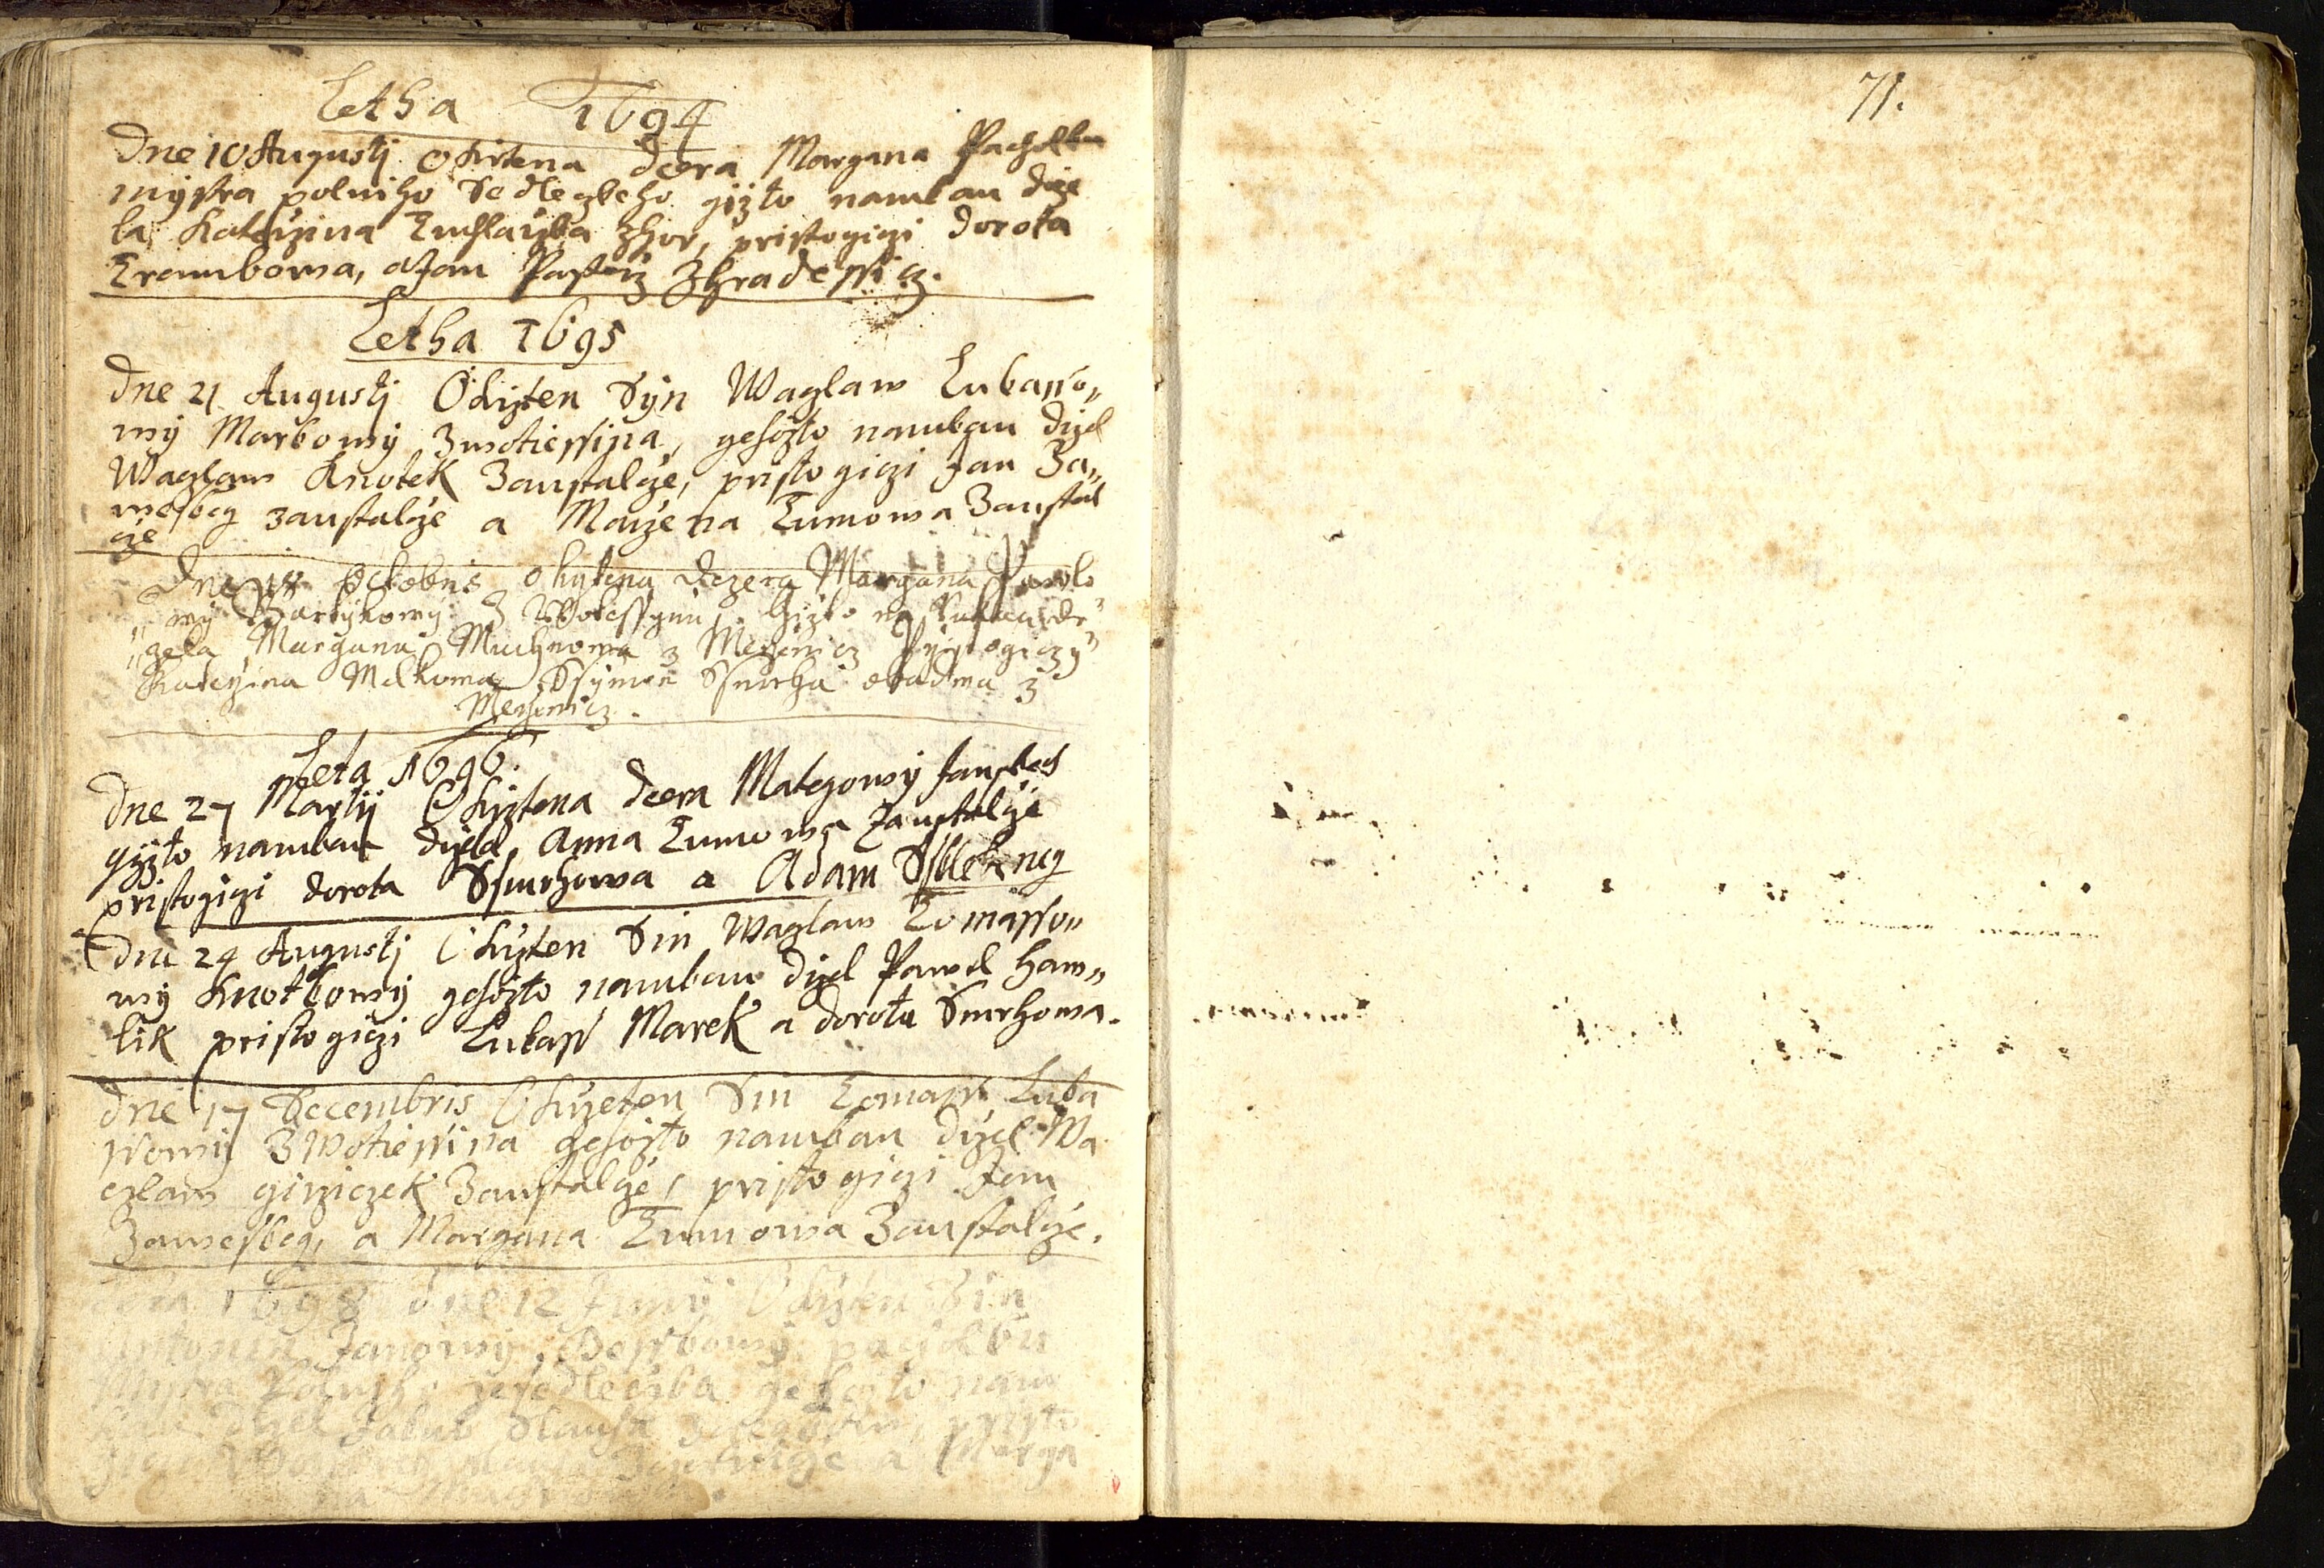 Letha 1694
Dne 10 Augusti Okrtena dcera Margana Pacholku
mystra polniho Sedlczkeho gizto namlau drze
la, Katerzina Zhor, pristogiczi dorota
a Jan Pasteiz Zhradessicz.
Letha 1695
Dne 21 Augusti Okrzten Syn Waczlaw Lukasso„
wy Markowy Zwotiessina, gehozto namlau drzel
Waczlaw Knotek Zaustalcze, pristogiczi Jan Za„
weskey zaustalcze a Marzena Tumowa Zaustal
cze
Dne Octobris okrztena dczera Margana Pawlo
„wy Z Wotessyna, Gizto na
„zela Margana Muchnowa z Mezhericz Przistogiczy
Katerzina Melkowa Ssymon Ssmrha obadwa z
Mezericz.
Leta 1696.
Dne 27 Martij Okrztena dcera Mategowy
gizto namlau drzela Anna Tumowa Zaustalcze
pristogiczi dorota Ssmrhowa a Adam
Dne 24 Augusti Okrzten Sin Waczlaw Tomasso„
wy Knotkowy gehozto namlauw drzel Pawel Haw„
lik pristogiczi Lukass Marek a dorota Smrhowa.
Dne 17 Decembris Okrzten Sin Tomass Luka
ssowy Zwotiessina gehozto namlau drzel Wa
czlaw girziczek Zaustalcze, pristogiczi Jan
Zaweskey, a Margana Tumowa Zaustalcze.
Leta 1698 dne 12 Juny Okrzten Sin
Antonin Janowy, pacholku
Mistra Polniho gehozto nam
lau drzel Jakub pristo
giczi a Marga
na
71.